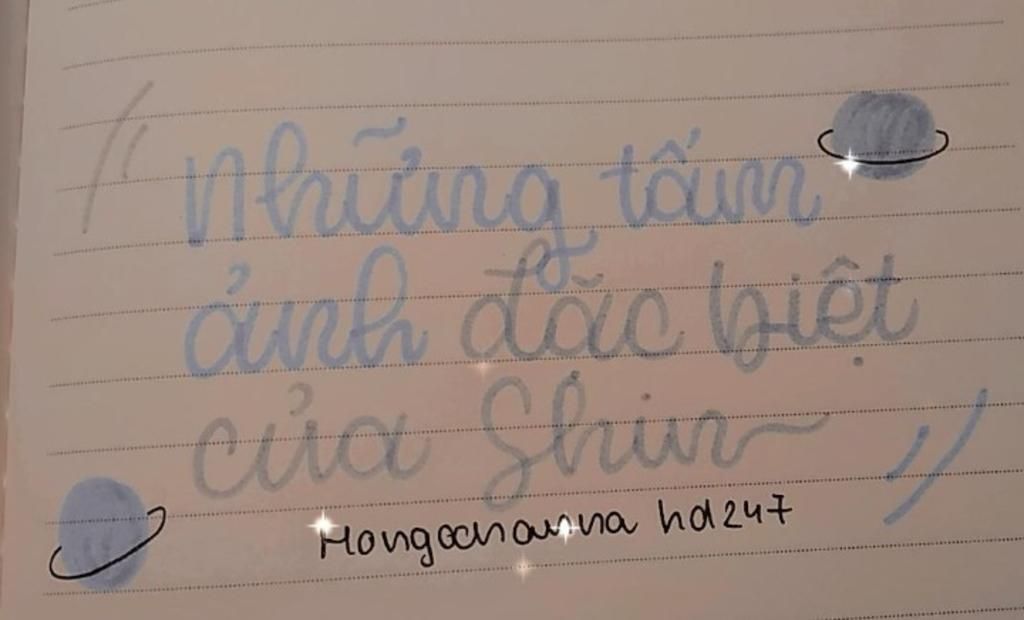 Những tấm
ảnh đặc biệt
của Shin
Hongochanna hd247